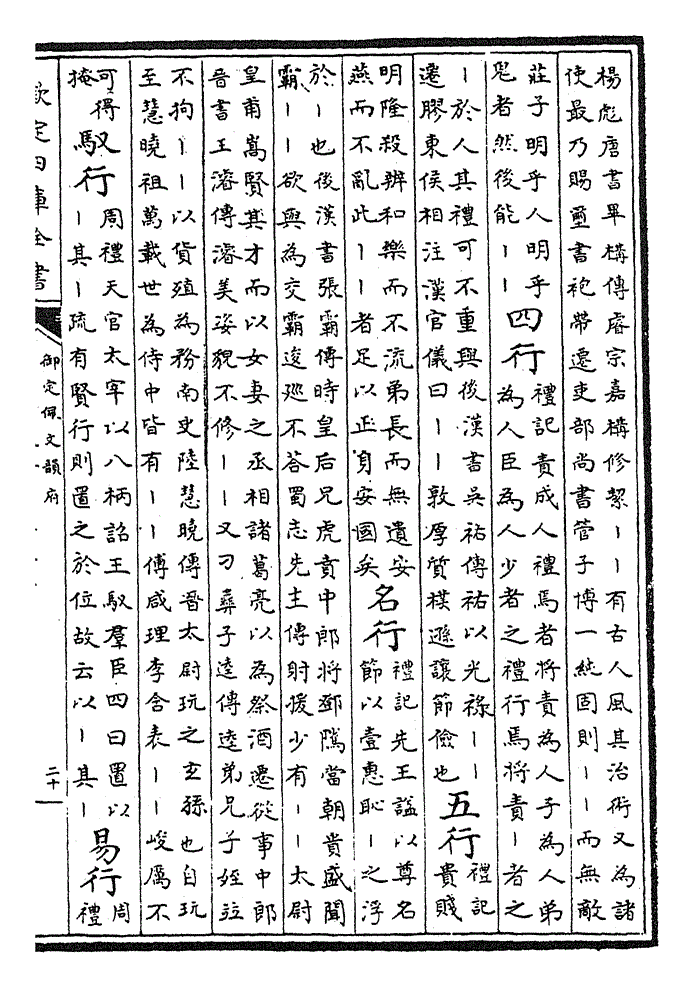 楊彪唐書畢構傳睿宗嘉構修絜丨丨有古人風其治術又為諸
使最乃賜璽書袍帶遷吏部尚書管子博一純固則丨丨而無敵
莊子明乎人明乎
鬼者然後能丨丨
四行
禮記責成人禮焉者將責為人子為人弟
為人臣為人少者之禮行焉將責丨者之
丨於人其禮可不重與後漢書吳祐傳祐以光祿丨丨
遷膠東侯相注漢官儀曰丨丨敦厚質樸遜讓節儉也
五行
禮記
貴賤
明隆殺辨和樂而不流弟長而無遺安
燕而不亂此丨丨者足以正身安國矣
名行
禮記先王諡以尊名
節以壹惠恥丨之浮
於丨也後漢書張霸傳時皇后兄虎賁中郎將鄧隲當朝貴盛聞
霸丨丨欲與為交霸逡巡不答蜀志先主傳射援少有丨丨太尉
皇甫嵩賢其才而以女妻之丞相諸葛亮以為祭酒遷從事中郎
晉書王濬傳濬美姿貌不修丨丨又刁彝子逵傳逵弟兄子姪竝
不拘丨丨以貨殖為務南史陸慧曉傳晉太尉玩之玄孫也自玩
至慧曉祖萬載世為侍中皆有丨丨傅咸理李含表丨丨峻厲不
可得
掩
馭行
周禮天官太宰以八柄詔王馭羣臣四曰置以
丨其丨疏有賢行則置之於位故云以丨其丨
易行
周
禮
欽定四庫全書
御定佩文韻府
二十